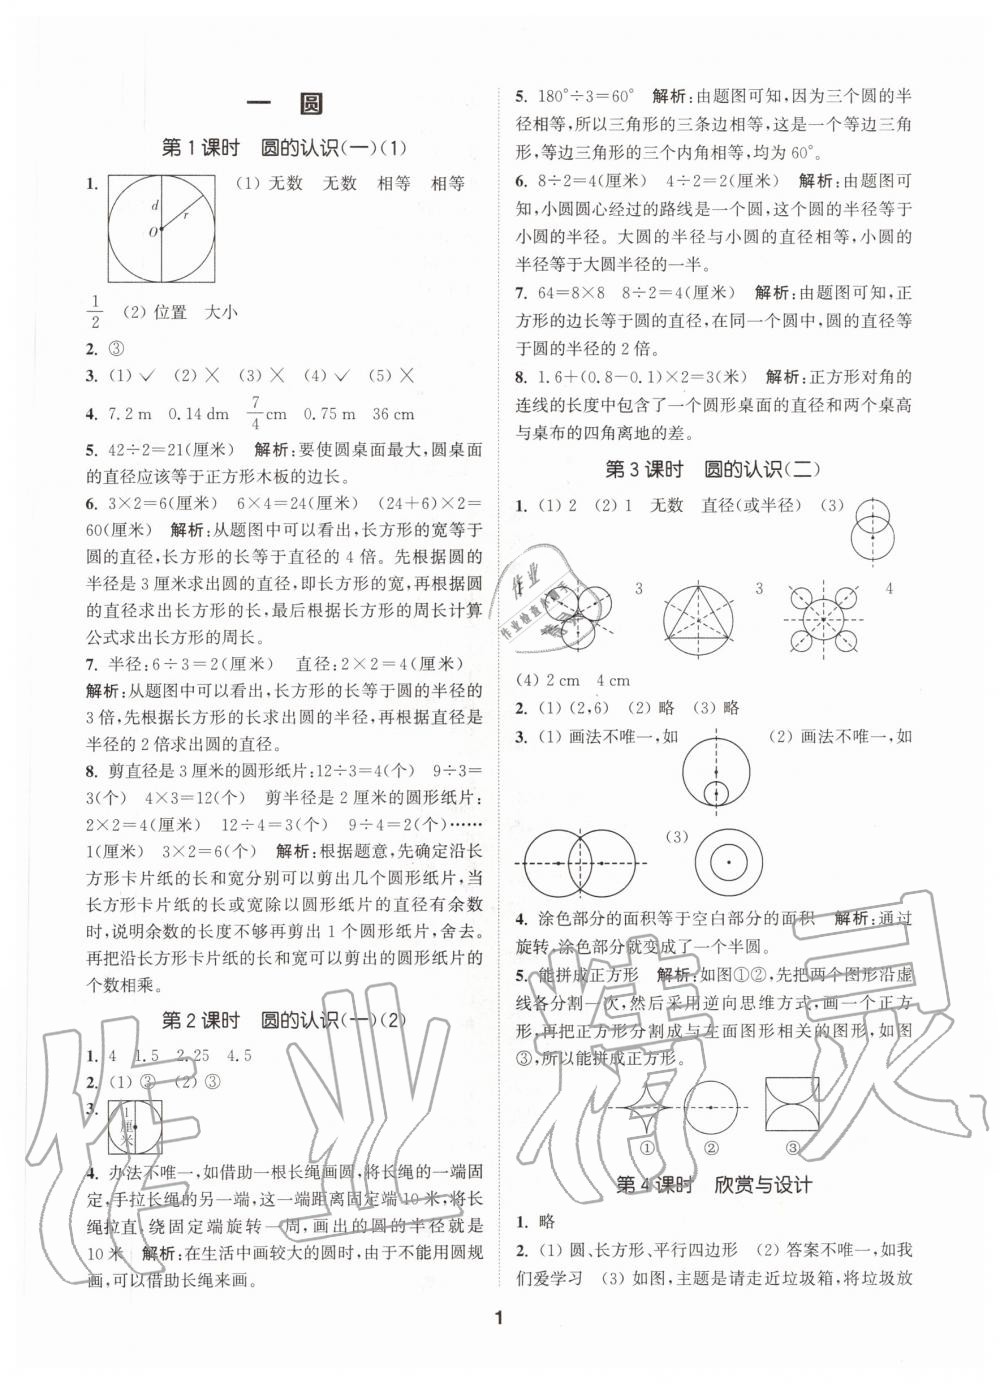 一 圆
第1课时 圆的认识(一)(1)
1. (1) 无数 无数 相等 相等
d
r
O
1/2 (2) 位置 大小
2. ③
3. (1) ✓ (2) ╳ (3) ╳ (4) ✓ (5) ╳
4. 7.2 m 0.14 dm 7/4 cm 0.75 m 36 cm
5. 42÷2=21(厘米) 解析:要使圆桌面最大,圆桌面
的直径应该等于正方形木板的边长。
6. 3×2=6(厘米) 6×4=24(厘米) (24+6)×2=
60(厘米) 解析:从题图中可以看出,长方形的宽等于
圆的直径,长方形的长等于直径的 4 倍。先根据圆的
半径是 3 厘米求出圆的直径,即长方形的宽,再根据圆
的直径求出长方形的长,最后根据长方形的周长计算
公式求出长方形的周长。
7. 半径:6÷3=2(厘米) 直径:2×2=4(厘米)
解析:从题图中可以看出,长方形的长等于圆的半径的
3倍,先根据长方形的长求出圆的半径,再根据直径是
半径的 2 倍求出圆的直径。
8. 剪直径是 3 厘米的圆形纸片:12÷3=4(个) 9÷3=
3(个) 4×3=12(个) 剪半径是 2 厘米的圆形纸片:
2×2=4(厘米) 12÷4=3(个) 9÷4=2(个)……
1(厘米) 3×2=6(个) 解析:根据题意,先确定沿长
方形卡片纸的长和宽分别可以剪出几个圆形纸片,当
长方形卡片纸的长或宽除以圆形纸片的直径有余数
时,说明余数的长度不够再剪出 1 个圆形纸片,舍去。
再把沿长方形卡片纸的长和宽可以剪出的圆形纸片的
个数相乘。
第2课时 圆的认识(一)(2)
1. 4 1.5 2.25 4.5
2. (1) ③ (2) ③
3. 1厘米
4. 办法不唯一,如借助一根长绳画圆,将长绳的一端固
定,手拉长绳的另一端,这一端距离固定端 10 米,将长
绳拉直,绕固定端旋转一周,画出的圆的半径就是
10 米 解析:在生活中画较大的圆时,由于不能用圆规
画,可以借助长绳来画。
5. 180°÷3=60° 解析:由题图可知,因为三个圆的半
径相等,所以三角形的三条边相等,这是一个等边三角
形,等边三角形的三个内角相等,均为 60°。
6. 8÷2=4(厘米) 4÷2=2(厘米) 解析:由题图可
知,小圆圆心经过的路线是一个圆,这个圆的半径等于
小圆的半径。大圆的半径与小圆的直径相等,小圆的
半径等于大圆半径的一半。
7. 64=8×8 8÷2=4(厘米) 解析:由题图可知,正
方形的边长等于圆的直径,在同一个圆中,圆的直径等
于圆的半径的 2 倍。
8. 1.6+(0.8-0.1)×2=3(米) 解析:正方形对角的
连线的长度中包含了一个圆形桌面的直径和两个桌高
与桌布的四角离地的差。
第3课时 圆的认识(二)
1. (1) 2 (2) 1 无数 直径(或半径) (3)
3 3 4
(4) 2 cm 4 cm
2. (1) (2,6) (2) 略 (3) 略
3. (1) 画法不唯一,如 (2) 画法不唯一,如
(3)
4. 涂色部分的面积等于空白部分的面积 解析:通过
旋转,涂色部分就变成了一个半圆。
5. 能拼成正方形 解析:如图①②,先把两个图形沿虚
线各分割一次,然后采用逆向思维方式,画一个正方
形,再把正方形分割成与左面图形相关的图形,如图
③,所以能拼成正方形。
① ② ③
第4课时 欣赏与设计
1. 略
2. (1) 圆、长方形、平行四边形 (2) 答案不唯一,如我
们爱学习 (3) 如图,主题是请走近垃圾箱,将垃圾放
1
作业精灵
作业
作业检查小助手